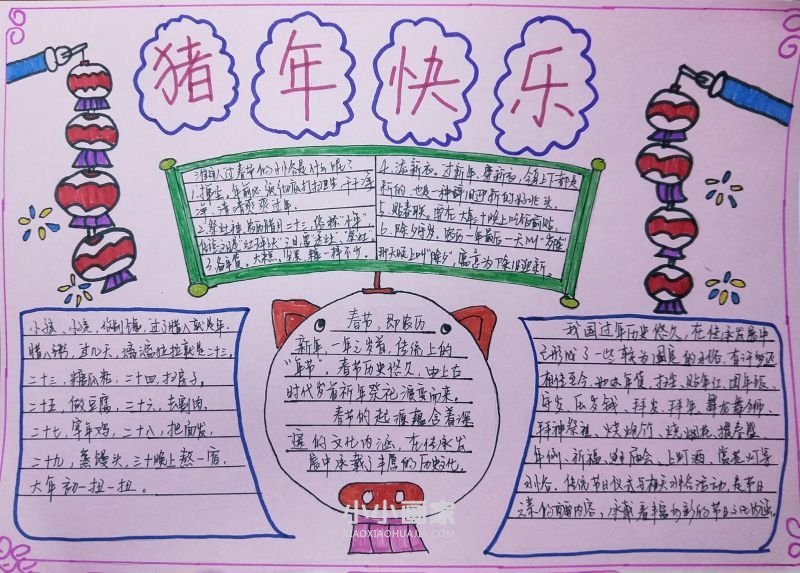 猪年快乐
淮阳人过春节的习俗是什么呢?
1.掸尘，年前必须彻底打扫卫生，干干净
净，清清爽爽过年。
3.备年货。大糕、
4.添新衣。过新年，穿新衣，镇上下都是
新的，也是一种辞旧迎新的好兆头。
5.贴春联。
6.除夕守岁。农历一年最后一天叫"岁除"
那天晚上叫"除夕"寓意为除旧迎新。
小孩、小孩，你别馋，过了腊八就是年。
腊八粥，过几天，漓漓拉拉就是二十三。
二十三，糖瓜粘，二十四，扫房子。
二十五，做豆腐，二十六，去割肉。
二十七，宰年鸡，二十八，把面发，
二十九，蒸馒头，三十晚上熬一宿，
大年初一扭一扭。
春节，即农历
新年，一年之岁首，传统上的
"年节"。春节历史悠久，由上古
时代岁首祈年祭祀演变而来。
春节的起源蕴含着深
邃的文化内涵，在传承发
展中承载了丰厚的历史文化。
我国过年历史悠久，在传承发展中
已形成了一些较为固定的习俗，有许多还
相传至今，如办年货、扫尘、贴年红、团年饭、
守岁、压岁钱、拜岁、拜年、舞龙舞狮、
拜神祭祖、烧炮竹、烧烟花、掼春盛、
年例、祈福、逛庙会、上灯酒、赏花灯等
习俗。传统节日仪式与相关习俗活动，是节日
元素的重要内容，承载着丰富多彩的节日文化内涵。
小小画家
XIAOXIAOHUAJIA.COM